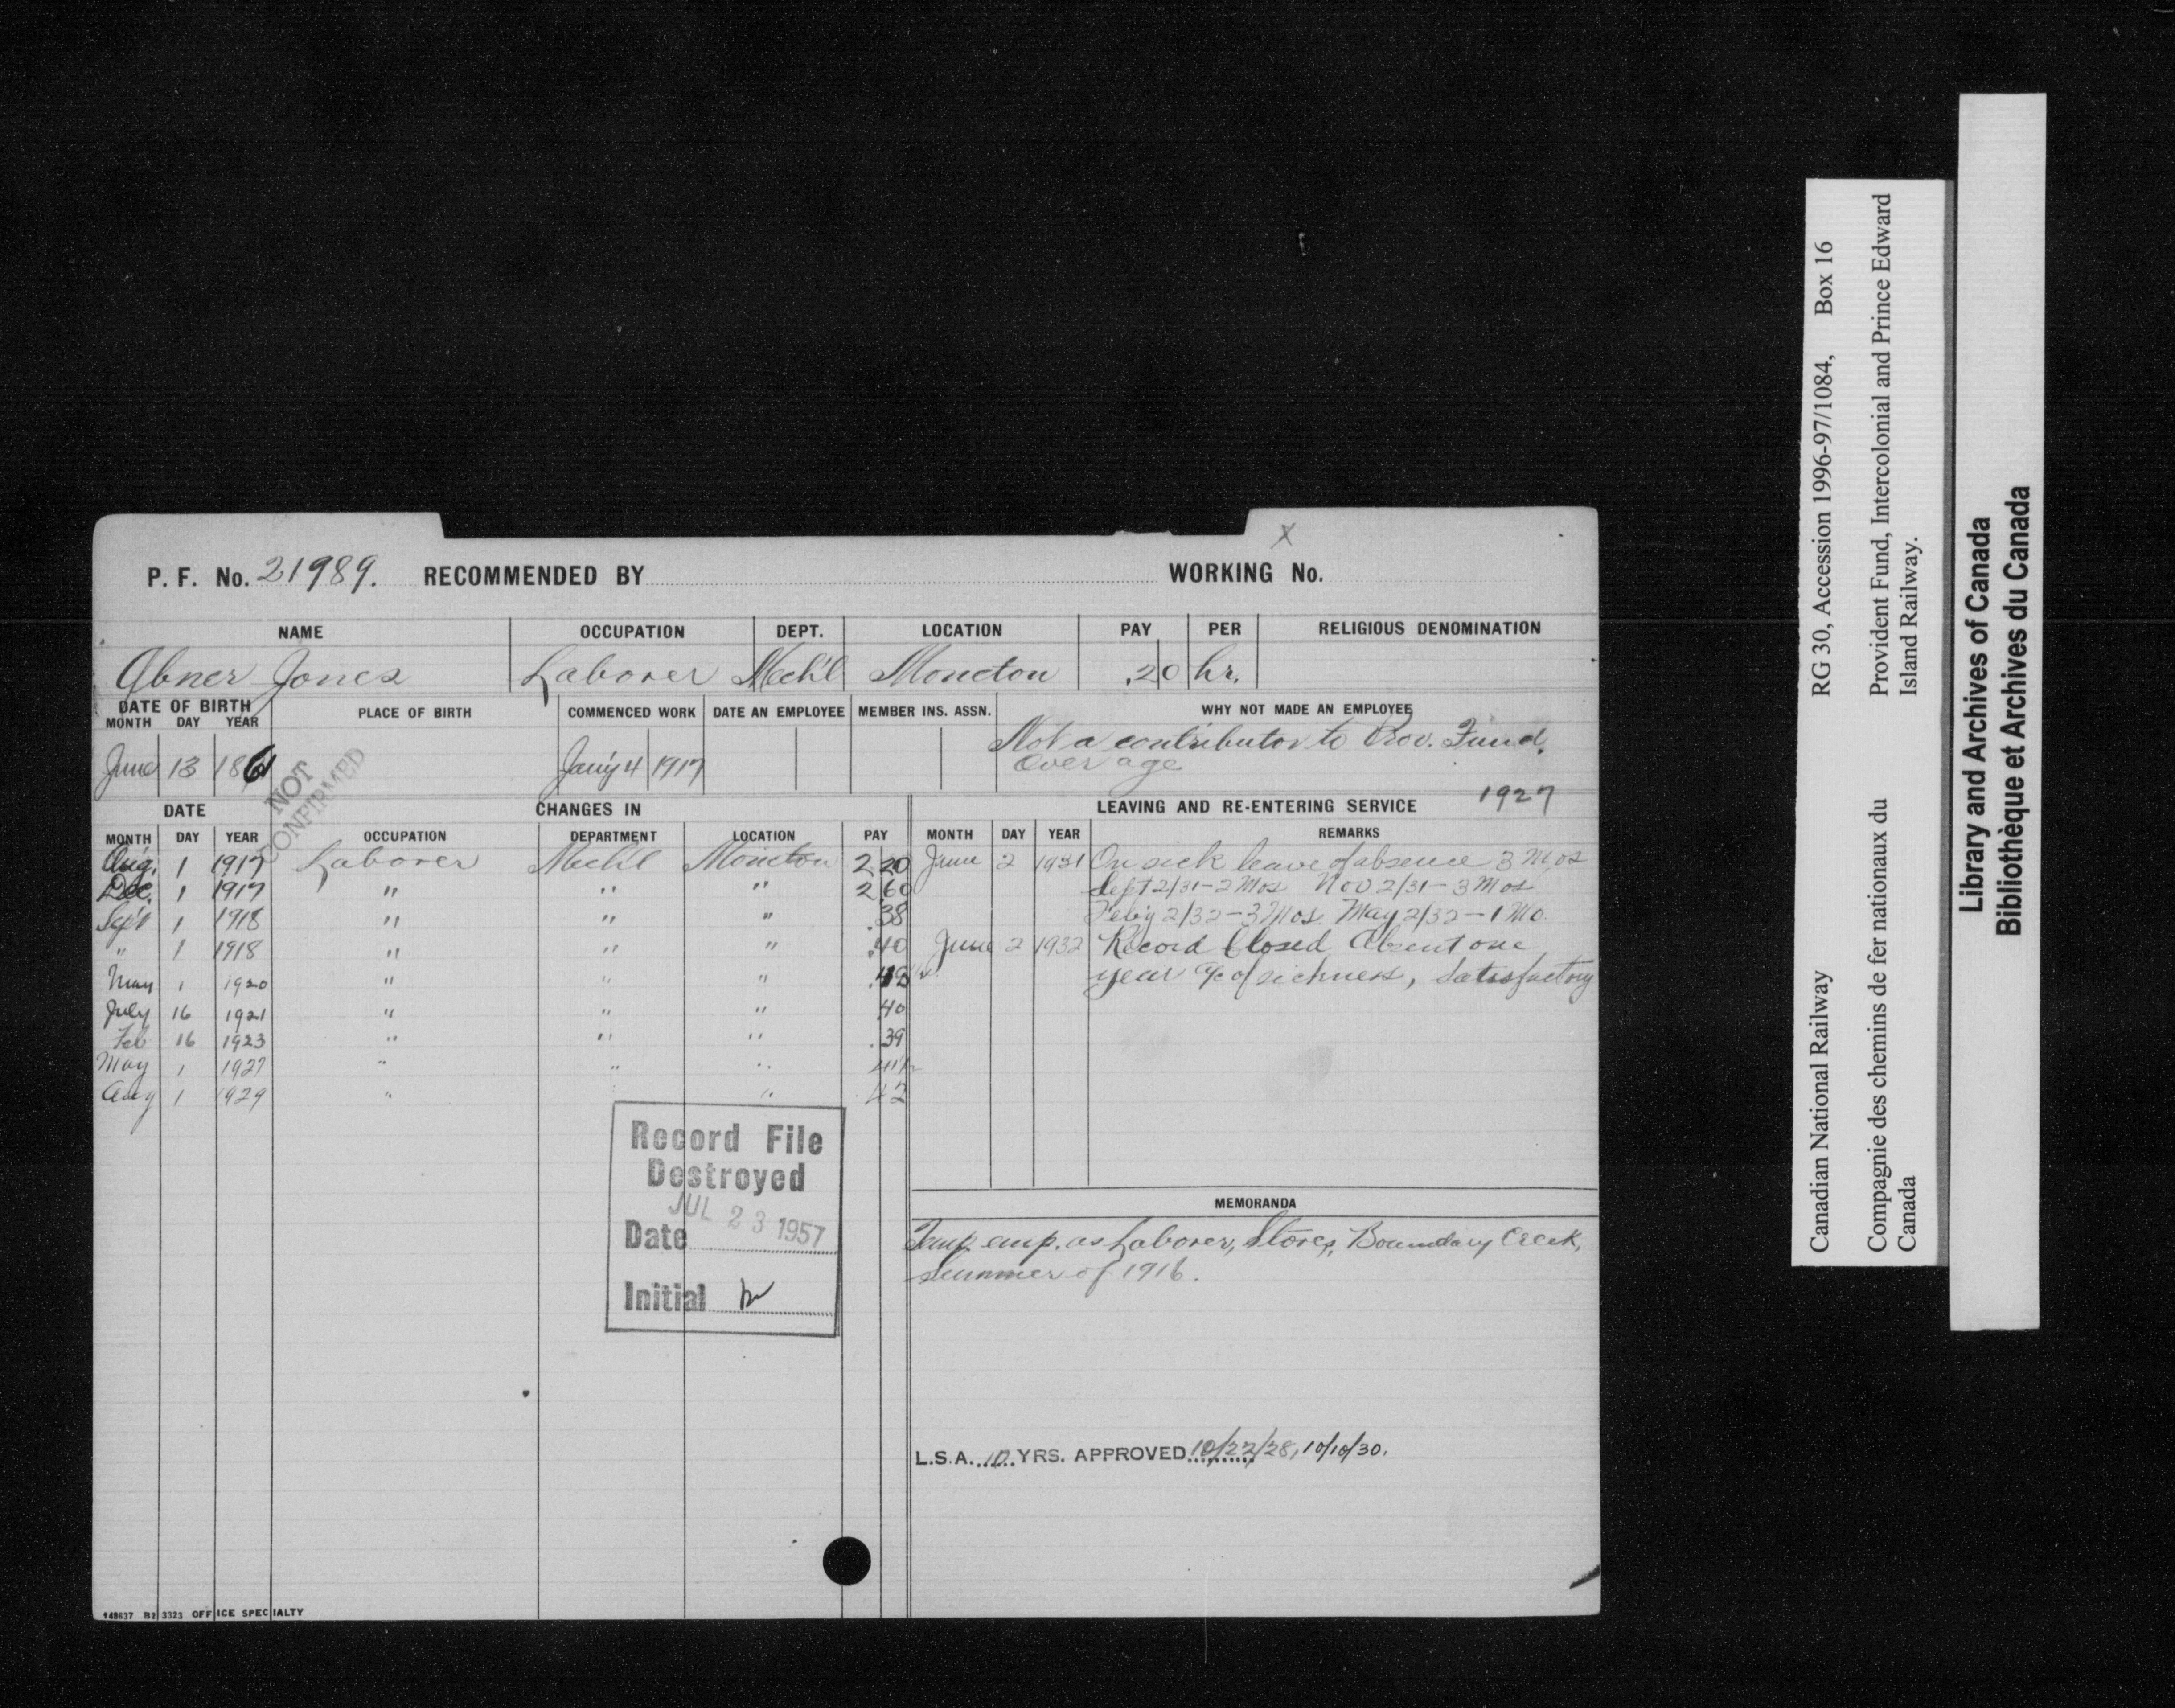 X
P. F. No. 21989. RECOMMENDED BY WORKING No.
NAME OCCUPATION DEPT. LOCATION PAY PER RELIGIOUS DENOMINATION
Abner Jones Laborer Mech'l Moncton .20 hr.
DATE OF BIRTH PLACE OF BIRTH COMMENCED WORK DATE AN EMPLOYEE MEMBER INS. ASSN. WHY NOT MADE AN EMPLOYEE
MONTH DAY YEAR
Not a contributor to Prov. Fund.
June 13 1861 Jan'y 4 1917 Over age
NOT
CONFIRMED
DATE CHANGES IN LEAVING AND RE-ENTERING SERVICE 1927
MONTH DAY YEAR OCCUPATION DEPARTMENT LOCATION PAY MONTH DAY YEAR REMARKS
Aug. 1 1917 Laborer Mechl Moncton 2 20 June 2 1931 On sick leave of absence 3 Mos
Dec. 1 1917 " " " 2 60 Sept 2/31-2 Mos Nov 2/31-3 Mos
Sept 1 1918 " " " .38 Feb'y 2/32-3 Mos. May 2/32-1 Mo.
" 1 1918 " " " .40 June 2 1932 Record Closed Absent one
May 1 1920 " " " year a/c of sickness, Satisfactory
July 16 1921 " " " .40
Feb 16 1923 " " " .39
May 1 1927 " " "
Aug 1 1929 " " " 42
Record File
Destroyed
JUL 23 1957
Date
Initial
MEMORANDA
Temp. emp. as Laborer, Stores, Boundary Creek,
summer of 1916.
L.S.A. 10 YRS. APPROVED 10/22/28, 10/10/30.
148637 B2 3323 OFFICE SPECIALTY
Canadian National Railway RG 30, Accession 1996-97/1084, Box 16
Compagnie des chemins de fer nationaux du Provident Fund, Intercolonial and Prince Edward
Canada Island Railway.
Library and Archives of Canada
Bibliothèque et Archives du Canada